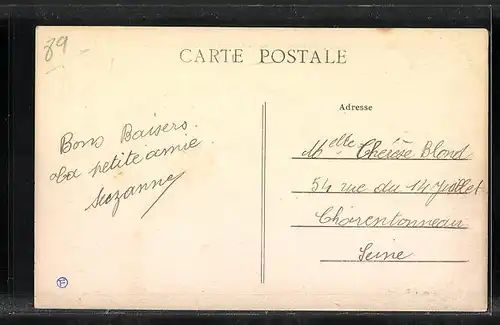 89
CARTE POSTALE
Adresse
Bons Baisers.
La petite amie
Suzanne
Melle Thérèse Blond
54 rue du 14 Juillet
Charentonneau
Seine